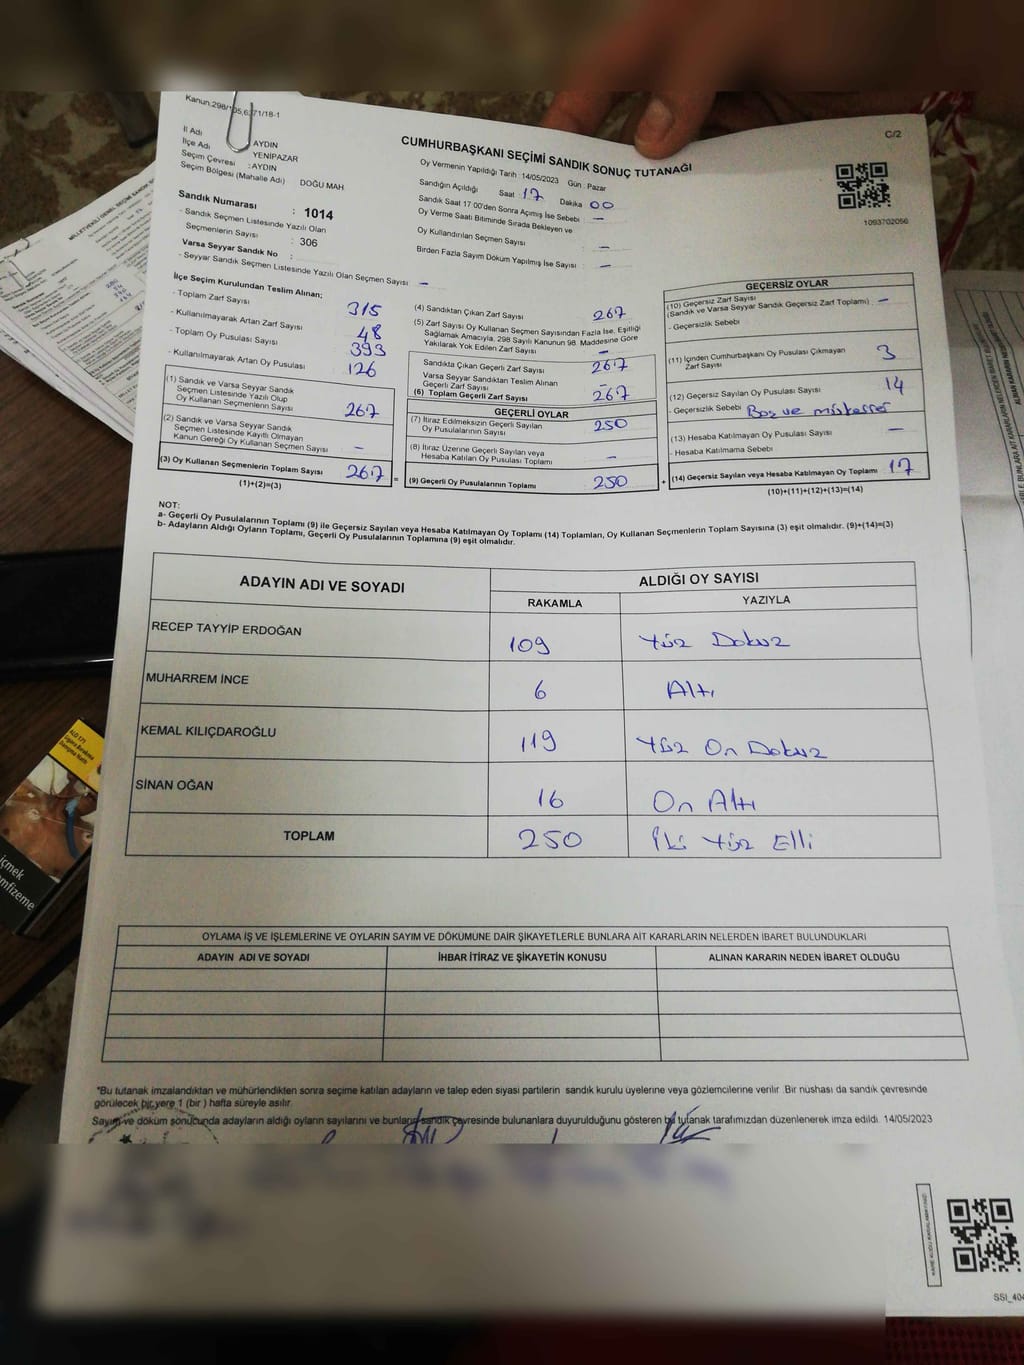 Kanun:298/105,6271/18-1
C/2
CUMHURBAŞKANI SEÇİMİ SANDIK SONUÇ TUTANAĞI
İl Adı : AYDIN
İlçe Adı : YENİPAZAR
Seçim Çevresi : AYDIN
Seçim Bölgesi (Mahalle Adı) DOĞU MAH.
Sandık Numarası : 1014
- Sandık Seçmen Listesinde Yazılı Olan
Seçmenlerin Sayısı : 306
Varsa Seyyar Sandık No :
- Seyyar Sandık Seçmen Listesinde Yazılı Olan Seçmen Sayısı : –
Oy Vermenin Yapıldığı Tarih :14/05/2023 Gün : Pazar
Sandığın Açıldığı Saat 17 Dakika 00
Sandık Saat 17:00'den Sonra Açılmış İse Sebebi –
Oy Verme Saati Bitiminde Sırada Bekleyen ve
Oy Kullandırılan Seçmen Sayısı –
Birden Fazla Sayım Döküm Yapılmış İse Sayısı –
1093702056
İlçe Seçim Kurulundan Teslim Alınan;
- Toplam Zarf Sayısı 315
- Kullanılmayarak Artan Zarf Sayısı 48
- Toplam Oy Pusulası Sayısı 393
- Kullanılmayarak Artan Oy Pusulası 126
(1) Sandık ve Varsa Seyyar Sandık
Seçmen Listesinde Yazılı Olup
Oy Kullanan Seçmenlerin Sayısı 267
(2) Sandık ve Varsa Seyyar Sandık
Seçmen Listesinde Kayıtlı Olmayan
Kanun Gereği Oy Kullanan Seçmen Sayısı –
(3) Oy Kullanan Seçmenlerin Toplam Sayısı 267
(1)+(2)=(3)
=
(4) Sandıktan Çıkan Zarf Sayısı 267
(5) Zarf Sayısı Oy Kullanan Seçmen Sayısından Fazla İse, Eşitliği
Sağlamak Amacıyla, 298 Sayılı Kanunun 98. Maddesine Göre
Yakılarak Yok Edilen Zarf Sayısı –
Sandıkta Çıkan Geçerli Zarf Sayısı 267
Varsa Seyyar Sandıktan Teslim Alınan
Geçerli Zarf Sayısı –
(6) Toplam Geçerli Zarf Sayısı 267
GEÇERLİ OYLAR
(7) İtiraz Edilmeksizin Geçerli Sayılan
Oy Pusulalarının Sayısı 250
(8) İtiraz Üzerine Geçerli Sayılan veya
Hesaba Katılan Oy Pusulası Toplamı –
(9) Geçerli Oy Pusulalarının Toplamı 250
+
GEÇERSİZ OYLAR
(10) Geçersiz Zarf Sayısı
(Sandık ve Varsa Seyyar Sandık Geçersiz Zarf Toplamı) –
- Geçersizlik Sebebi
(11) İçinden Cumhurbaşkanı Oy Pusulası Çıkmayan
Zarf Sayısı 3
(12) Geçersiz Sayılan Oy Pusulası Sayısı 14
- Geçersizlik Sebebi Boş ve mükerrer
(13) Hesaba Katılmayan Oy Pusulası Sayısı –
- Hesaba Katılmama Sebebi
(14) Geçersiz Sayılan veya Hesaba Katılmayan Oy Toplamı 17
(10)+(11)+(12)+(13)=(14)
NOT:
a- Geçerli Oy Pusulalarının Toplamı (9) ile Geçersiz Sayılan veya Hesaba Katılmayan Oy Toplamı (14) Toplamları, Oy Kullanan Seçmenlerin Toplam Sayısına (3) eşit olmalıdır. (9)+(14)=(3)
b- Adayların Aldığı Oyların Toplamı, Geçerli Oy Pusulalarının Toplamına (9) eşit olmalıdır.
ADAYIN ADI VE SOYADI
ALDIĞI OY SAYISI
RAKAMLA YAZIYLA
RECEP TAYYİP ERDOĞAN 109 Yüz Dokuz
MUHARREM İNCE 6 Altı
KEMAL KILIÇDAROĞLU 119 Yüz On Dokuz
SİNAN OĞAN 16 On Altı
TOPLAM 250 İki Yüz Elli
OYLAMA İŞ VE İŞLEMLERİNE VE OYLARIN SAYIM VE DÖKÜMÜNE DAİR ŞİKAYETLERLE BUNLARA AİT KARARLARIN NELERDEN İBARET BULUNDUKLARI
ADAYIN ADI VE SOYADI İHBAR İTİRAZ VE ŞİKAYETİN KONUSU ALINAN KARARIN NEDEN İBARET OLDUĞU
*Bu tutanak imzalandıktan ve mühürlendikten sonra seçime katılan adayların ve talep eden siyasi partilerin sandık kurulu üyelerine veya gözlemcilerine verilir .Bir nüshası da sandık çevresinde
görülecek bir yere 1 (bir ) hafta süreyle asılır.
Sayım ve döküm sonucunda adayların aldığı oyların sayılarını ve bunların sandık çevresinde bulunanlara duyurulduğunu gösteren bu tutanak tarafımızdan düzenlenerek imza edildi. 14/05/2023
ALO 171
içmek
mfizeme
SSI_404